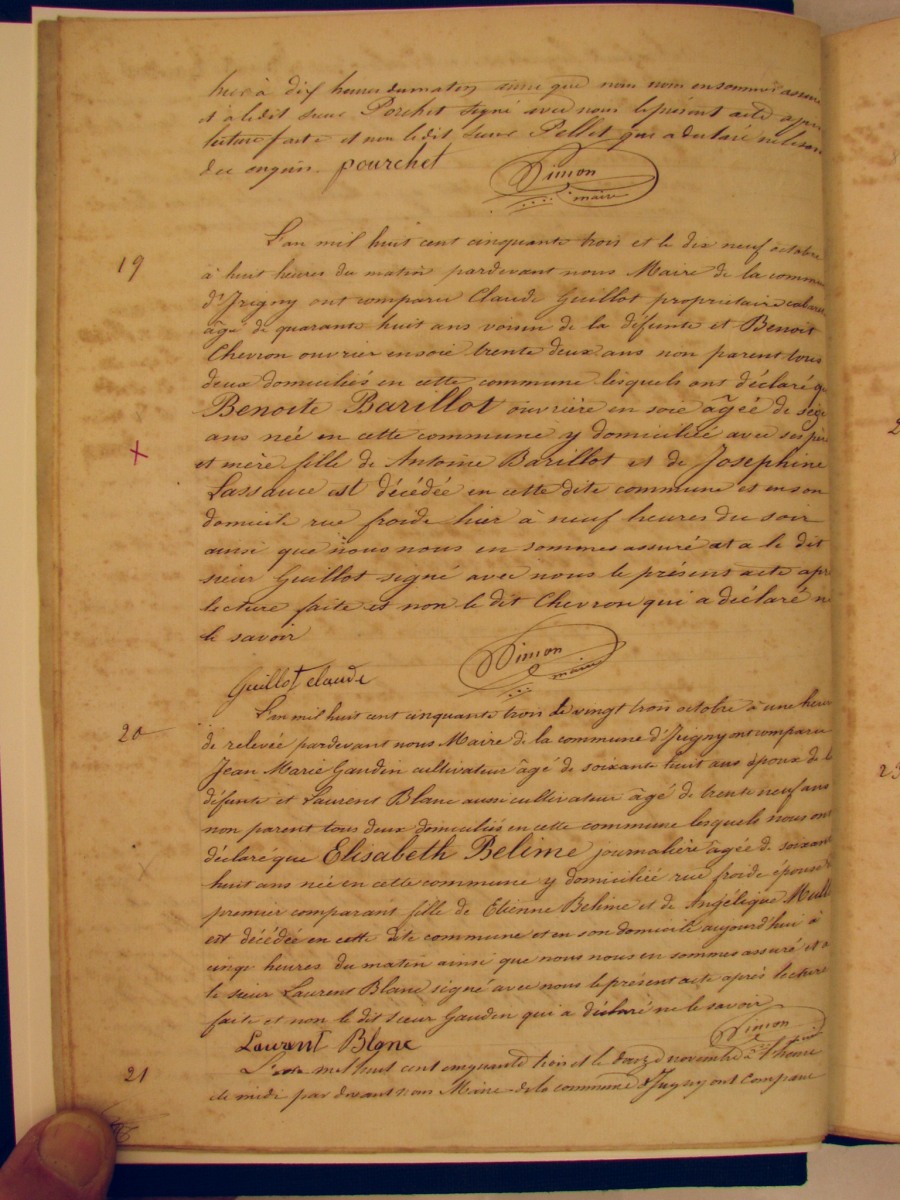 hier à dix heures du matin ainsi que nous nous en sommes assuré
et a le dit sieur Porchet signé avec nous le présent acte après
lecture faite et non le dit sieur Pellet qui a declaré ne le savoir
de ce enquis. pourchet
Simon
maire
19
L'an mil huit cent cinquante trois et le dix neuf octobre
à huit heures du matin pardevant nous Maire de la commune
d'Irigny ont comparu Claude Guillot propriétaire
âgé de quarante huit ans voisin de la défunte et Benoit
Chevron ouvrier en soie trente deux ans non parent tous
deux domiciliés en cette commune lesquels ont déclaré q
Benoite Barillot ouvrière en soie âgéé de
ans née en cette commune y domiciliéé avec ses pèr
et mère fille de Antoine Barillot et de Josephine
Lassauce est décédée en cette dite commune et en son
domicile rue froide hier à neuf heures du soir
ainsi que nous nous en sommes assuré et a le dit
sieur Guillot signé avec nous le présent acte apr
lecture faite et non le dit Chevron qui a déclaré n
le savoir
Simon
maire
Guillot claude
20
L'an mil huit cent cinquante trois le vingt trois octobre à une heure
de relevée pardevant nous Maire de la commune d'Irigny ont comparu
Jean Marie Gaudin cultivateur âgé de soixante huit ans époux de l
défunte et Laurent Blanc aussi cultivateur âgé de trente neuf ans
non parent tous deux domiciliés en cette commune lesquels nous ont
déclaré que Elisabeth Belime journalière âgée de soixant
huit ans née en cette commune y domiciliéé rue froide épouse
premier comparant fille de Etienne Belime et de Angélique
est décédée en cette dite commune et en son domicile aujourd'hui à
cinq heures du matin ainsi que nous nous en sommes assuré et a
le sieur Laurent Blanc signé avec nous le présent acte après lecture
faite et non le dit sieur Gaudin qui a déclaré ne le savoir
Simon
Laurent Blanc
21
L'an mil huit cent cinquante trois et le novembre à
de midi par devant nous Maire de la commune d'Irigny ont comparu